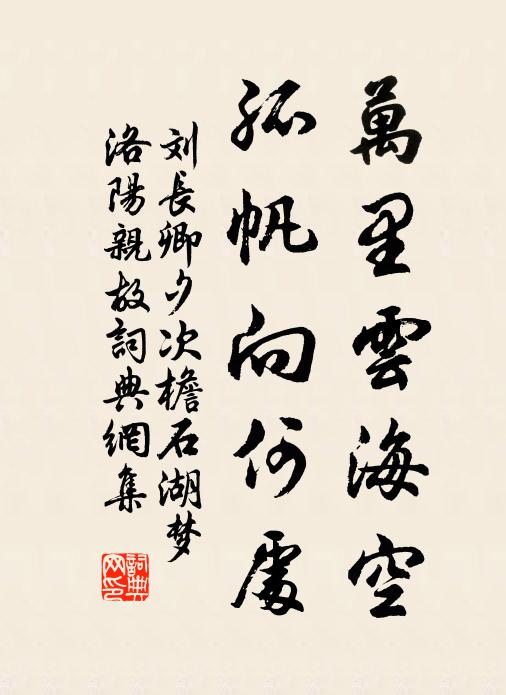 萬里雲海空
孤帆向何處
刘長卿夕次檐石湖梦
洛陽親故詞典網集
詞典网印